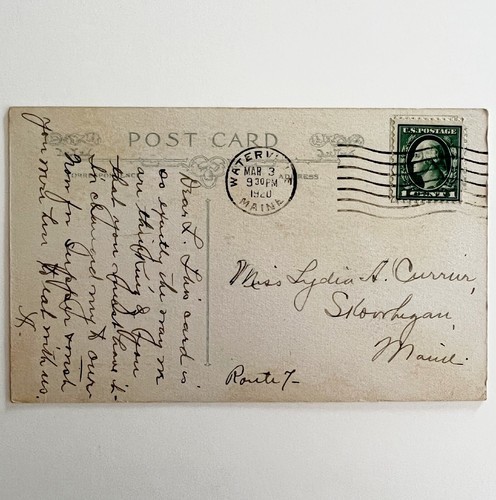 POST CARD
WATERVILLE
MAR 3
9 30 PM
1920
MAINE
U.S. POSTAGE
1 CENT 1
Dear L. This card is
so exactly the way we
are thinking of you
that you must have it.
changed my our
for supper
You were at with us.
Miss Lydia A. Currier,
Skowhegan,
Maine.
Route 7-